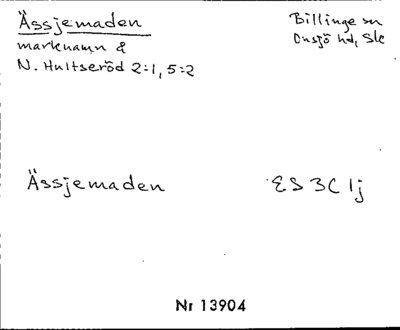 Ässjemaden
Billinge sn
marknamn å
Onsjö hd, Sk
N. Hultseröd 2:1, 5:2
Ässjemaden
ES 3C 1j
Nr 13904